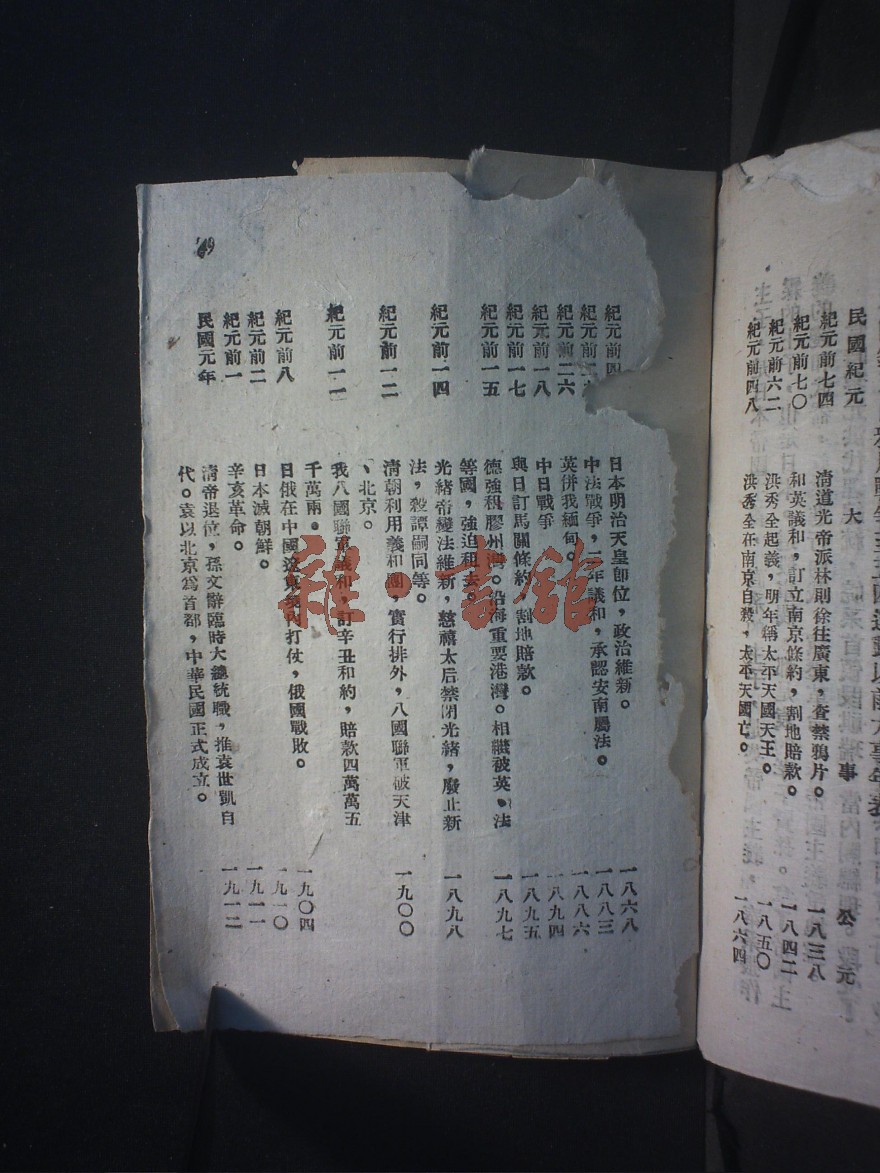 民國紀元 大 事 公 元
紀元前七四 清道光帝派林則徐往廣東，查禁鴉片。 一八三八
紀元前七〇 和英議和，訂立南京條約，割地賠款。 一八四二
紀元前六二 洪秀全起義，明年稱太平天國天王。 一八五〇
紀元前四八 洪秀全在南京自殺，太平天國亡。 一八六四
紀元前四 日本明治天皇卽位，政治維新。 一八六八
紀元前二 中法戰爭，三年議和，承認安南屬法。 一八八三
紀元前二六 英併我緬甸。 一八八六
紀元前一八 中日戰爭 一八九四
紀元前一七 與日訂馬關條約，割地賠款。 一八九五
紀元前一五 德強租膠州灣。沿海重要港灣。相繼被英、法 一八九七
等國，強迫租去。
紀元前一四 光緒帝變法維新，慈禧太后禁閉光緒，廢止新 一八九八
法，殺譚嗣同等。
紀元前一二 清朝利用義和團，實行排外，八國聯軍破天津 一九〇〇
、北京。
紀元前一一 我八國聯軍議和，訂辛丑和約，賠款四萬萬五
千萬兩。
紀元前八 日俄在中國遼東境內打仗，俄國戰敗。 一九〇四
紀元前二 日本滅朝鮮。 一九一〇
紀元前一 辛亥革命。 一九一一
民國元年 清帝退位，孫文辭臨時大總統職，推袁世凱自 一九一二
代。袁以北京爲首都，中華民國正式成立。